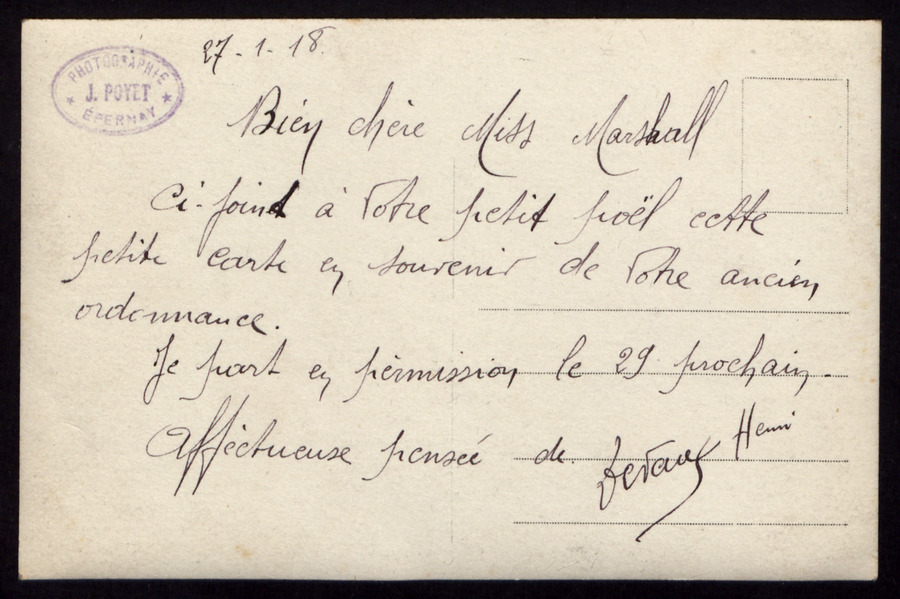 27-1-18
PHOTOGRAPHIE
J. POYET
ÉPERNAY
Bién chère Miss Marshall
Ci-joint à Votre petit poël cette
petite carte en souvenir de Votre ancien
ordonnance.
Je part en permission le 29 prochain.
Afféctueuse pensée de Devaux Henri